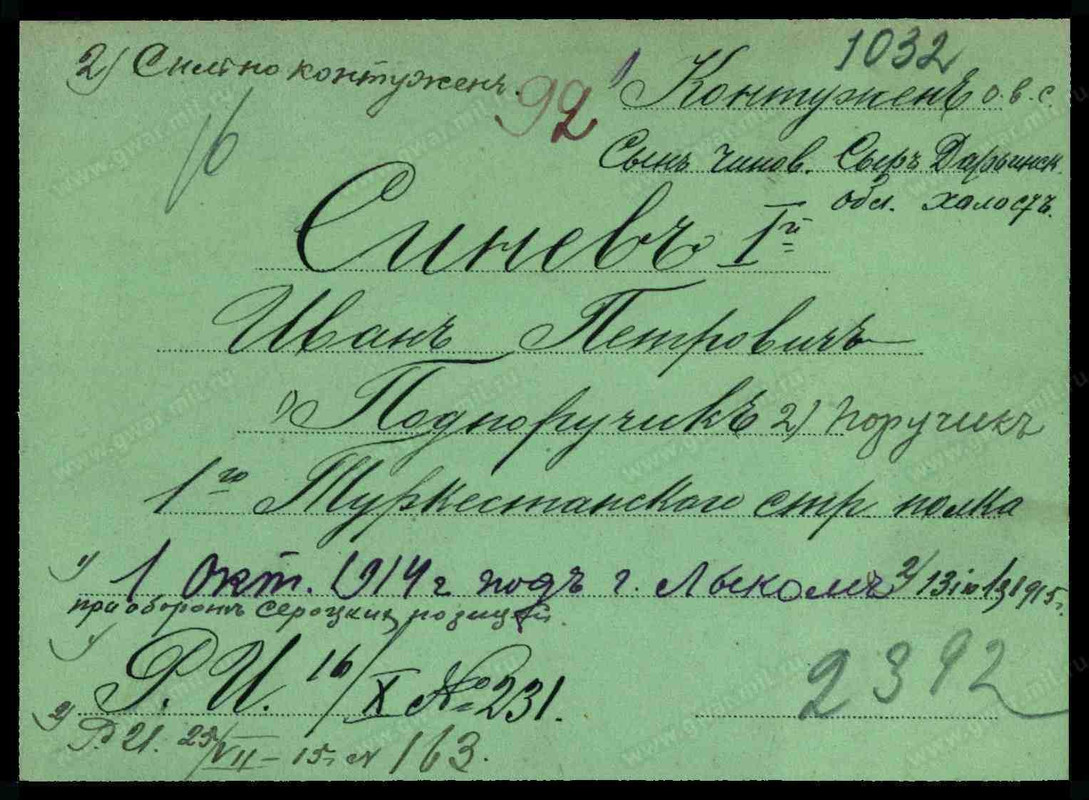 1032
2) Сильно контуженъ. 92 1) Контуженъ о.в.с
16
Сынъ чинов. Сыръ Дарьинск.
обл. холостъ.
Синевъ 1й
Иванъ Петровичъ
1) Подпоручикъ 2) Поручикъ
1го Туркестанского стр полка
1) 1 Окт. 1914 г подъ г. Лыкомъ 2) 13 1915 г.
при оборонѣ Сероцких позицій.
1) Р. И. 16/X № 231.
2392
2) Р.И. 25/VII – 15 г. № 163.
www.gwar.mil.ru